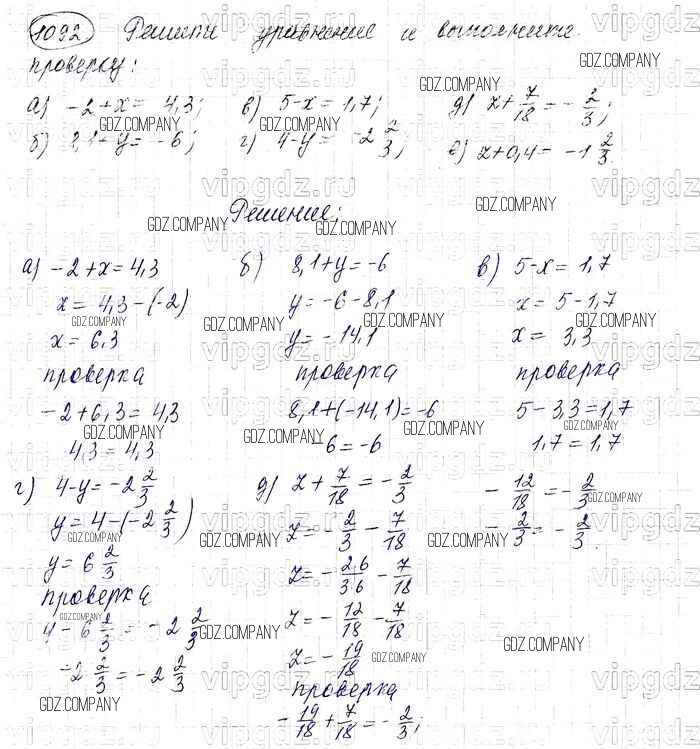 1092 Решите уравнение и выполните
проверку:
а) -2+x = 4,3; в) 5-x = 1,7; д) z+7/18 = -2/3;
б) 8,1+y = -6; г) 4-y = -2 2/3; е) z+0,4 = -1 2/3.
Решение:
а) -2+x = 4,3
x = 4,3-(-2)
x = 6,3
проверка
-2+6,3 = 4,3
4,3 = 4,3
б) 8,1+y = -6
y = -6-8,1
y = -14,1
проверка
8,1+(-14,1) = -6
-6 = -6
в) 5-x = 1,7
x = 5-1,7
x = 3,3
проверка
5-3,3 = 1,7
1,7 = 1,7
г) 4-y = -2 2/3
y = 4-(-2 2/3)
y = 6 2/3
проверка
4-6 2/3 = -2 2/3
-2 2/3 = -2 2/3
д) z+7/18 = -2/3
z = -2/3 - 7/18
z = -2·6/3·6 - 7/18
z = -12/18 - 7/18
z = -19/18
проверка
-19/18 + 7/18 = -2/3;
-12/18 = -2/3
-2/3 = -2/3.
GDZ.COMPANY
vipgdz.ru